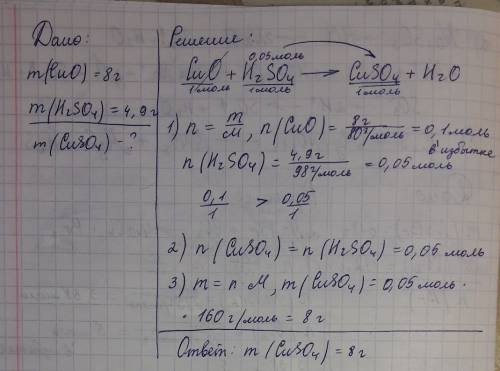 Дано:
m(CuO) = 8г
m(H₂SO₄) = 4,9г
m(CuSO₄) - ?
Решение:
0,05моль
CuO + H₂SO₄ → CuSO₄ + H₂O
1моль 1моль 1моль
1) n = m/M, n(CuO) = 8г/80г/моль = 0,1моль
в избытке
n(H₂SO₄) = 4,9г/98г/моль = 0,05моль
0,1/1 > 0,05/1
2) n(CuSO₄) = n(H₂SO₄) = 0,05 моль
3) m = n M, m(CuSO₄) = 0,05моль ·
· 160г/моль = 8г
Ответ: m(CuSO₄) = 8г